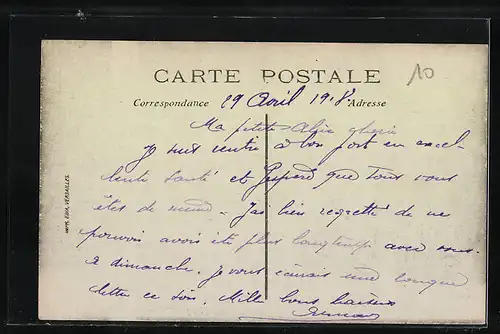 10
CARTE POSTALE
Correspondance 29 Avril 1918. Adresse
Ma petite
Je suis rentré à bon port en excel-
lente santé et j'espère que tous vous
êtes de même - J'ai bien regretté de ne
pouvoir avoir été plus longtemps avec vous
2 dimanche. Je vous écrirais une longue
lettre ce soir. Mille bons baisers
IMP. EDIA, VERSAILLES.